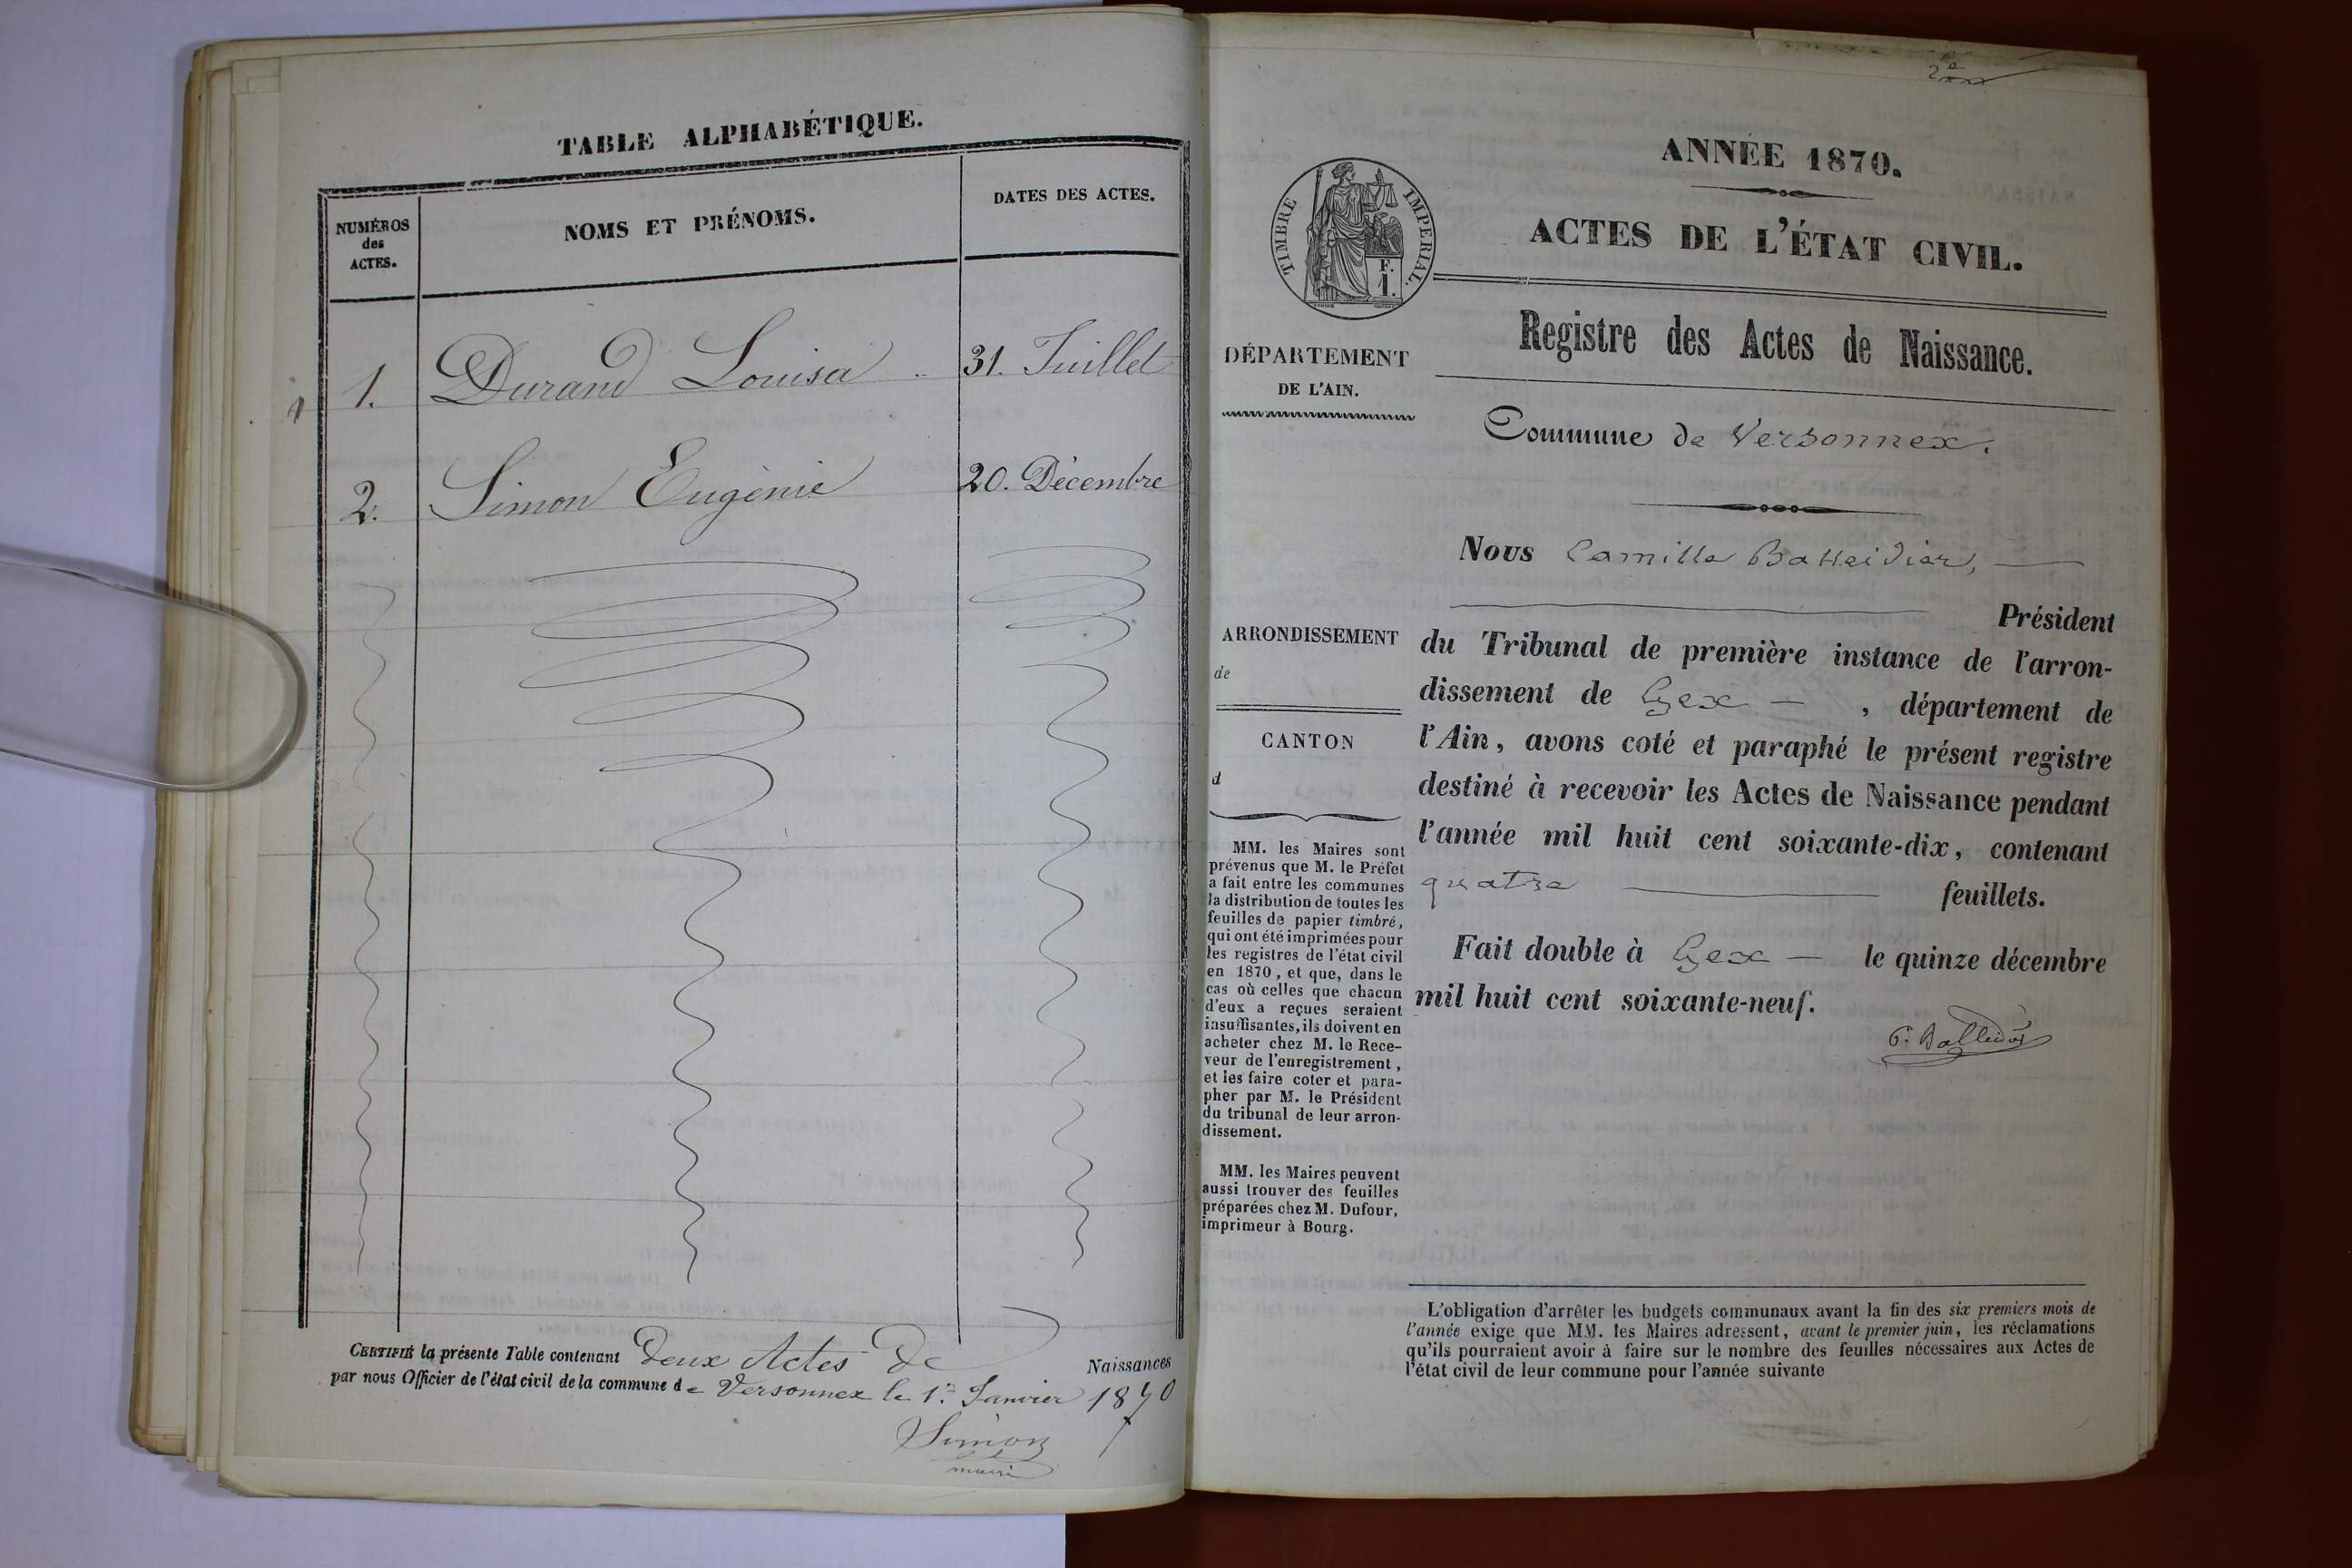 TABLE ALPHABÉTIQUE.
NUMÉROS
des
ACTES.
NOMS ET PRÉNOMS.
DATES DES ACTES.
1. Durand Louisa 31. Juillet
2. Simon Eugénie 20. Décembre
CERTIFIÉ la présente Table contenant Deux Actes De Naissances
par nous Officier de l'état civil de la commune de Versonnex le 1er Janvier 1870
Simon
maire
2e
ANNÉE 1870.
ACTES DE L'ÉTAT CIVIL.
TIMBRE IMPÉRIAL.
F.
1.
Registre des Actes de Naissance.
DÉPARTEMENT
DE L'AIN.
Commune de Versonnex.
Nous Camille Balleidier,
Président
du Tribunal de première instance de l'arron-
dissement de Gex , département de
l'Ain, avons coté et paraphé le présent registre
destiné à recevoir les Actes de Naissance pendant
l'année mil huit cent soixante-dix, contenant
quatre feuillets.
Fait double à Gex le quinze décembre
mil huit cent soixante-neuf.
C. Balleidier
ARRONDISSEMENT
de
CANTON
d
MM. les Maires sont
prévenus que M. le Préfet
a fait entre les communes
la distribution de toutes les
feuilles de papier timbré,
qui ont été imprimées pour
les registres de l'état civil
en 1870, et que, dans le
cas où celles que chacun
d'eux a reçues seraient
insuffisantes, ils doivent en
acheter chez M. le Rece-
veur de l'enregistrement,
et les faire coter et para-
pher par M. le Président
du tribunal de leur arron-
dissement.
MM. les Maires peuvent
aussi trouver des feuilles
préparées chez M. Dufour,
imprimeur à Bourg.
L'obligation d'arrêter les budgets communaux avant la fin des six premiers mois de
l'année exige que MM. les Maires adressent, avant le premier juin, les réclamations
qu'ils pourraient avoir à faire sur le nombre des feuilles nécessaires aux Actes de
l'état civil de leur commune pour l'année suivante